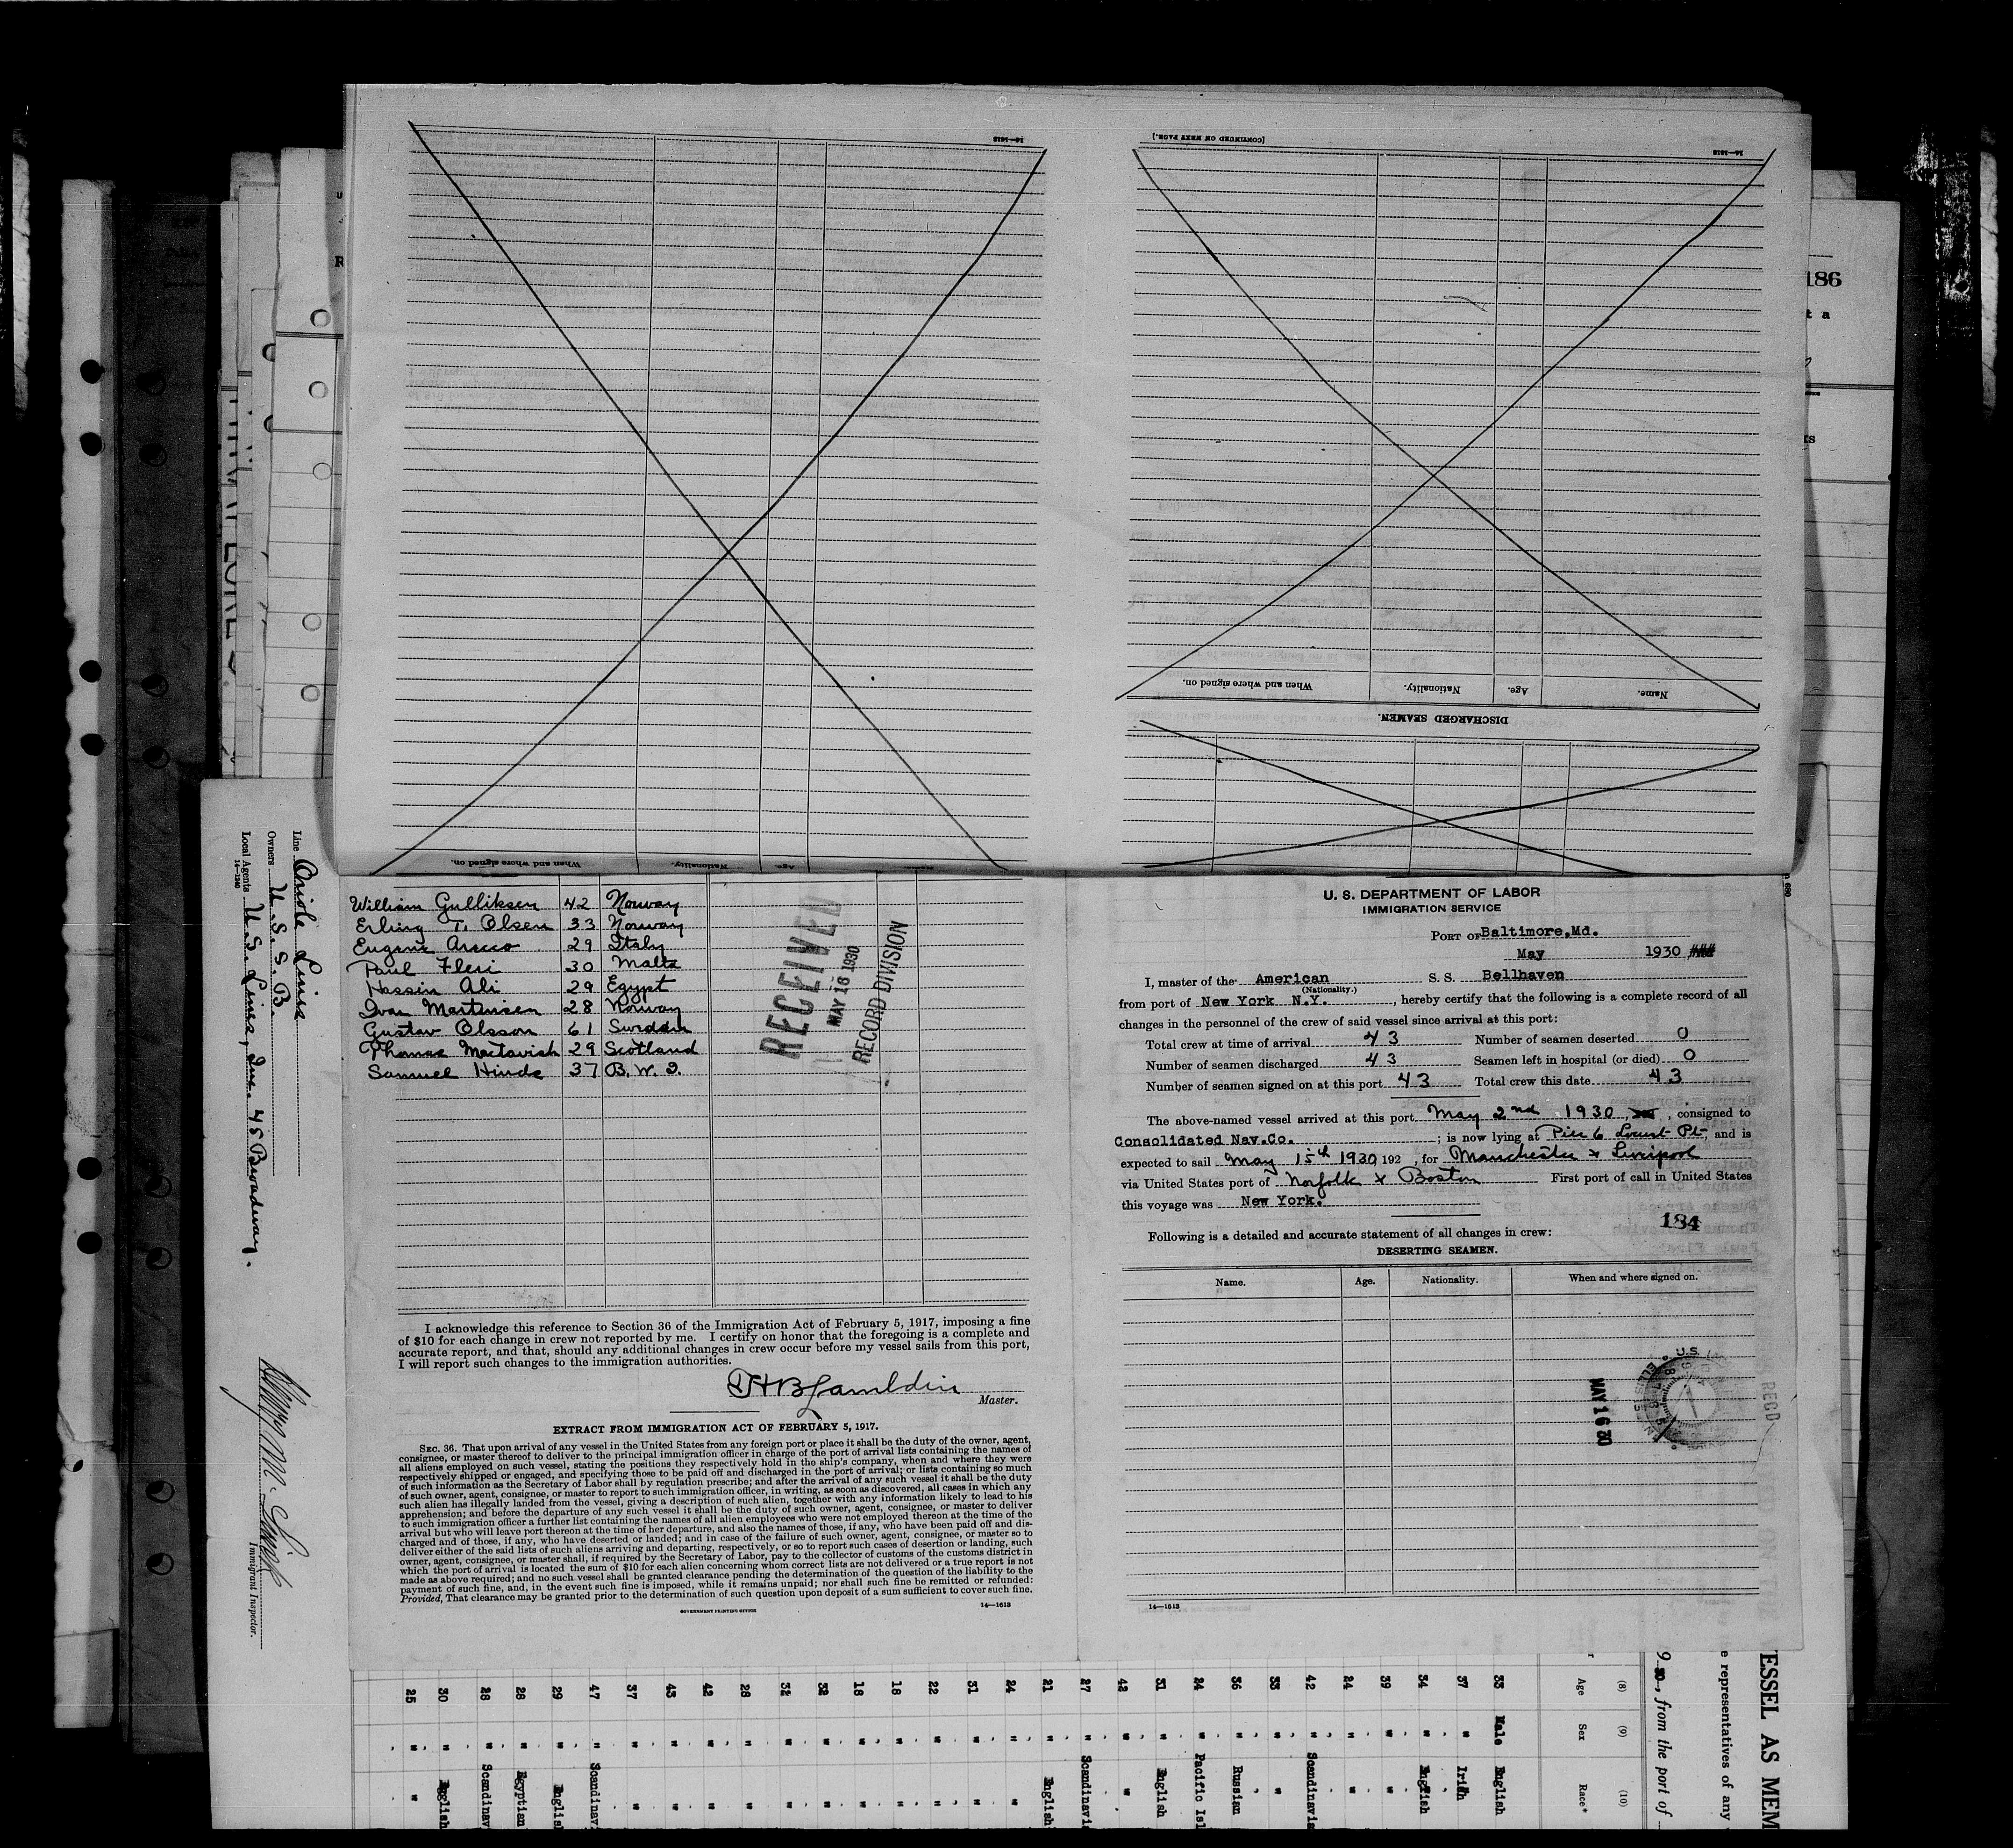 16—1613
[CONTINUED ON NEXT PAGE.]
16—1613
When and where signed on.
Nationality.
Age.
Name.
DISCHARGED SEAMEN.
When and where signed on.
Nationality.
Age.
186
t a
Line Oriole Lines
Owners U. S. S. B.
Local Agents U. S. Lines, Inc. 45 Broadway.
14—1240
Immigrant Inspector.
William Gulliksen 42 Norway
Erling T. Olsen 33 Norway
Eugene 29 Italy
Paul Fleri 30 Malta
Hassin Ali 29 Egypt
Ivar Martinsen 28 Norway
Gustav Olsson 61 Sweden
Thomas Mactavish 29 Scotland
Samuel Hinds 37 B. W. I.
RECEIVED
MAY 16 1930
RECORD DIVISION
I acknowledge this reference to Section 36 of the Immigration Act of February 5, 1917, imposing a fine
of $10 for each change in crew not reported by me. I certify on honor that the foregoing is a complete and
accurate report, and that, should any additional changes in crew occur before my vessel sails from this port,
I will report such changes to the immigration authorities.
Master.
EXTRACT FROM IMMIGRATION ACT OF FEBRUARY 5, 1917.
SEC. 36. That upon arrival of any vessel in the United States from any foreign port or place it shall be the duty of the owner, agent,
consignee, or master thereof to deliver to the principal immigration officer in charge of the port of arrival lists containing the names of
all aliens employed on such vessel, stating the positions they respectively hold in the ship's company, when and where they were
respectively shipped or engaged, and specifying those to be paid off and discharged in the port of arrival; or lists containing so much
of such information as the Secretary of Labor shall by regulation prescribe; and after the arrival of any such vessel it shall be the duty
of such owner, agent, consignee, or master to report to such immigration officer, in writing, as soon as discovered, all cases in which any
such alien has illegally landed from the vessel, giving a description of such alien, together with any information likely to lead to his
apprehension; and before the departure of any such vessel it shall be the duty of such owner, agent, consignee, or master to deliver
to such immigration officer a further list containing the names of all alien employees who were not employed thereon at the time of the
arrival but who will leave port thereon at the time of her departure, and also the names of those, if any, who have been paid off and dis-
charged and of those, if any, who have deserted or landed; and in case of the failure of such owner, agent, consignee, or master so to
deliver either of the said lists of such aliens arriving and departing, respectively, or so to report such cases of desertion or landing, such
owner, agent, consignee, or master shall, if required by the Secretary of Labor, pay to the collector of customs of the customs district in
which the port of arrival is located the sum of $10 for each alien concerning whom correct lists are not delivered or a true report is not
made as above required; and no such vessel shall be granted clearance pending the determination of the question of the liability to the
payment of such fine, and, in the event such fine is imposed, while it remains unpaid; nor shall such fine be remitted or refunded:
Provided, That clearance may be granted prior to the determination of such question upon deposit of a sum sufficient to cover such fine.
GOVERNMENT PRINTING OFFICE
14—1613
U. S. DEPARTMENT OF LABOR
IMMIGRATION SERVICE
PORT OF Baltimore, Md.
May 1930
I, master of the American S. S. Bellhaven
(Nationality.)
from port of New York N.Y., hereby certify that the following is a complete record of all
changes in the personnel of the crew of said vessel since arrival at this port:
Total crew at time of arrival 43 Number of seamen deserted 0
Number of seamen discharged 43 Seamen left in hospital (or died) 0
Number of seamen signed on at this port 43 Total crew this date 43
The above-named vessel arrived at this port May 2nd 1930, consigned to
Consolidated Nav.Co.; is now lying at Pier 6 Locust Pt, and is
expected to sail May 15th 1930 192 , for Manchester & Liverpool
via United States port of Norfolk & Boston First port of call in United States
this voyage was New York.
184
Following is a detailed and accurate statement of all changes in crew:
DESERTING SEAMEN.
Name. Age. Nationality. When and where signed on.
MAY 16 30
U.S.
RECD
14—1613
ESSEL AS MEM
e representatives of any
, from the port of
(8) (9) (10)
Age Sex Race*
33 Male English
37 " Irish
34 " English
39 " "
24 " "
42 " Scandinavia
33 " "
36 " Russian
24 " Pacific Isl
31 " English
42 " "
27 " Scandinavi
21 " English
24 " "
31 " "
22 " "
18 " "
18 " "
32 " "
32 " "
28 " "
42 " "
43 " "
37 " "
47 " Scandinav
29 " Englis
28 " Egyptian
28 " Scandinav
30 " English
25 " "